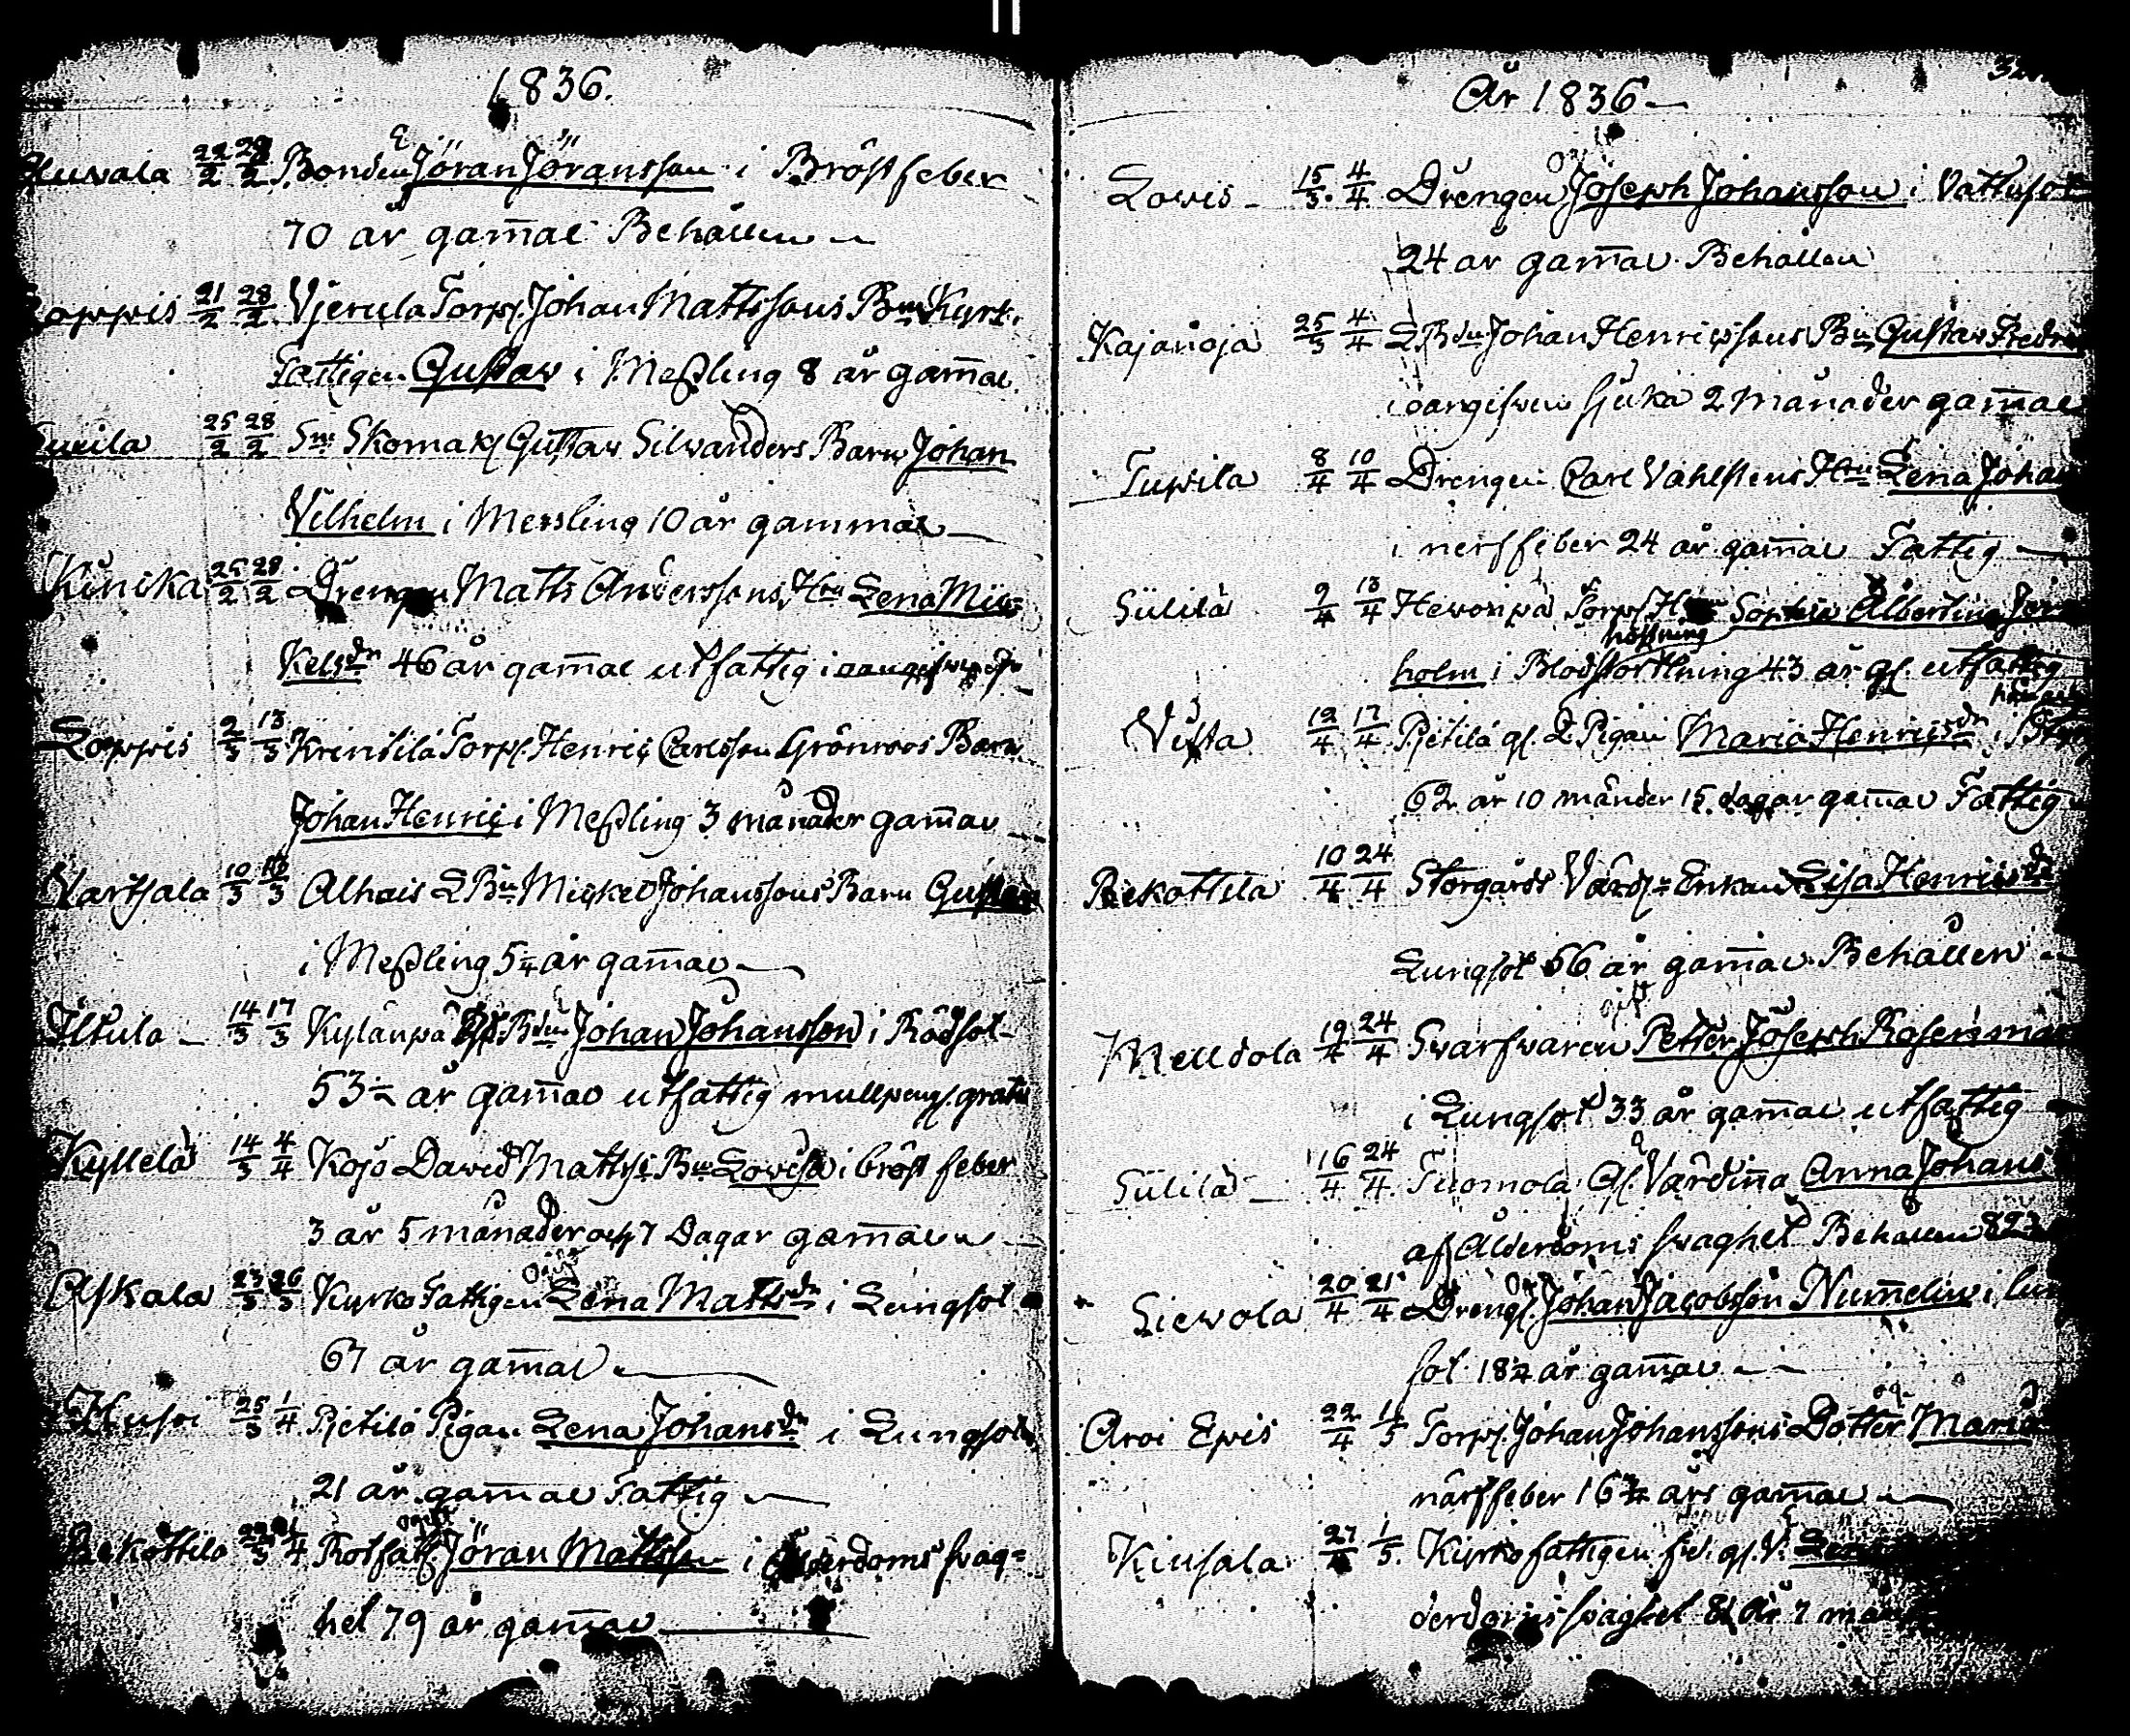 1836.
Huvala 22/2 28/2 Bonden Jöran Jöransson i Bröstfeber
70 år gam̄al Behållen
Loppis 21/2 28/2 Vjerula Torp. Johan Mattssons Bn Kyrk.
Fattigen Gustav i Meßling 8 år gam̄al
25/2 28/2 Sn Skomak Gustav Silvanders Barn Johan
Vilhelm i Messling 10 år gammal
Kinika 25/2 28/2 Drengen Matts Anderssons Hru Lena Mic=
kelsdr 46 år gam̄al utfattig i
Loppis 2/3 13/3 Krensilä Torp. Henric Carlsson Grönroos Barn
Johan Henric i Meßling 3 månader gam̄al
Vartsala 10/3 13/3 Alhais Bn Mickel Johanssons Barn Gustav
i Meßling 5 år gam̄al
Iltula 14/3 17/3 Kylänpä Johan Johansson i Rödsot
53 år gam̄al utfattig mullpeng. gratis
Kyllelä 14/3 4/4 Kojo David Matts. Bn Lovisa i bröst feber
3 år 5 månader och 7 Dagar gam̄al
Askala 23/3 26/3 Kyrko Fattigen Lena Mattsdr i Lungsot
67 år gam̄al
Husoi 25/3 1/4 Pietilä Pigan Lena Johansdr i Lungsot
21 år gam̄al Fattig
Rekottila Rotfatt. Jöran Mattsson i Ålderdoms svag=
het 79 år gam̄al
År 1836
Lowis 15/3 4/4 Drengen Joseph Johansson i Vattusot
24 år gam̄al Behållen
Kajanoja 25/3 4/4 Johan Henricssons Bn Gustav Fredric
i oangifven sjuka 2 månader gam̄al
Tuwila 8/4 10/4 Drengen Carl Vahlstens Hru Lena Johan
i nerffeber 24 år gam̄al Fattig
Sülilä 9/4 13/4 Heronpä Torp. Sophia Albertina
hostning
holm i Blodstörtning 43 år gl. utfattig
Vista 12/4 17/4 Pietilä gl. Pigan Maria Henricsdr i
62 år 10 månder 15 dagar gam̄al Fattig
Rekottila 10/4 24/4 Storgårds Enkan Lisa Henricsdr
Lungsot 56 år gam̄al Behållen
gift
Melldola 19/4 24/4 Svarfvaren Petter Joseph Rosenma
i Lungsot 33 år gam̄al utfattig
Sülilä 16/4 24/4 Tuomola Gl. Värdinna Anna Johans
af Ålderdoms svaghet Behållen 82
Sievola 20/4 21/4 Dreng. Johan Jacobsson Num̄elin i lun
sot 18 år gam̄al
Aroi Epis 22/4 1/5 Torp. Johan Johanssons Dotter Maria
närffeber 16 års gam̄al
Kiusala 27/4 1/5 Kyrko fattigen
derdoms svaghet 81 år 7 mån